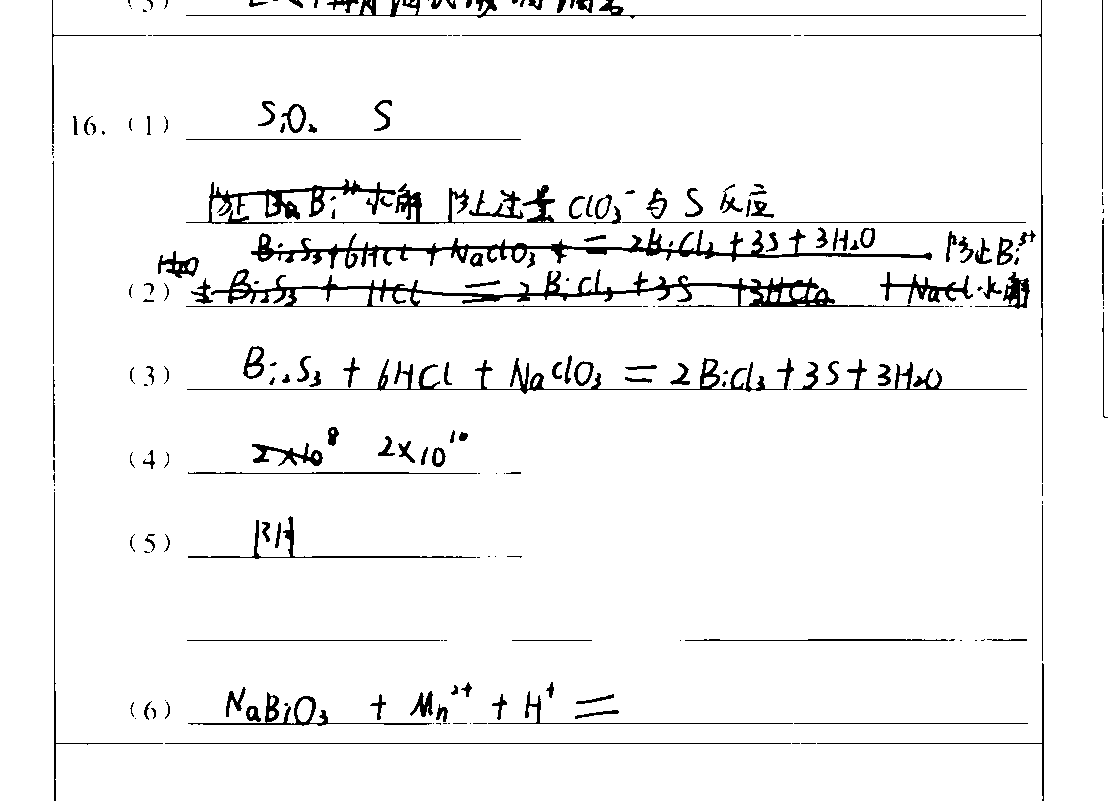 (5)
16. (1) SiO₂ S
防止 Bi³⁺水解 防止过量 ClO₃⁻ 与 S 反应
Bi₂S₃+6HCl + NaClO₃ = 2BiCl₃ + 3S + 3H₂O 防止Bi³⁺
(2) Bi₂S₃ + HCl = 2BiCl₃ + 3S + NaCl 水解
(3) Bi₂S₃ + 6HCl + NaClO₃ = 2BiCl₃ + 3S + 3H₂O
(4) 2×10⁸ 2×10¹⁰
(5) 阳
(6) NaBiO₃ + Mn²⁺ + H⁺ =